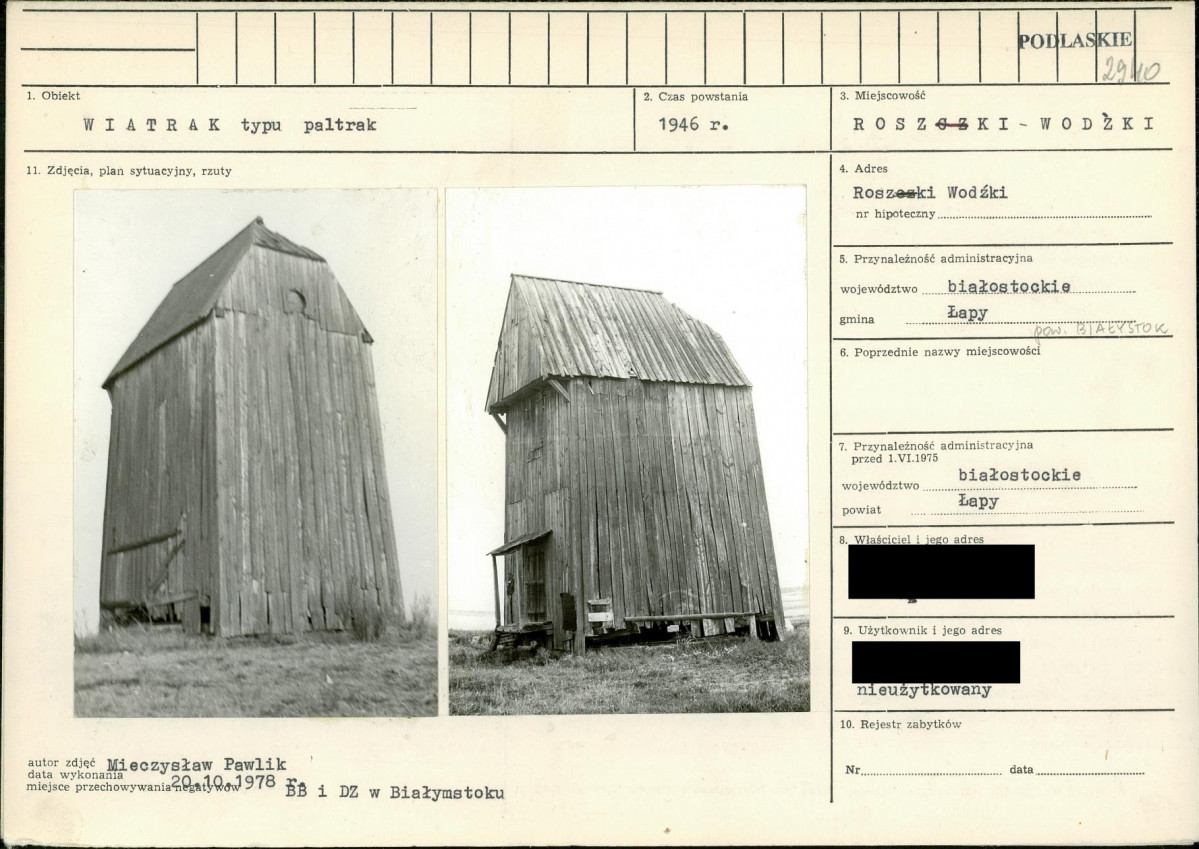 PODLASKIE
2940
1. Obiekt
WIATRAK typu paltrak
2. Czas powstania
1946 r.
3. Miejscowość
ROSZSZKI-WODŹKI
11. Zdjęcia, plan sytuacyjny, rzuty
4. Adres
Roszki Wodźki
nr hipoteczny
5. Przynależność administracyjna
województwo białostockie
gmina Łapy
pow. BIAŁYSTOK
6. Poprzednie nazwy miejscowości
7. Przynależność administracyjna
przed 1.VI.1975
województwo białostockie
powiat Łapy
8. Właściciel i jego adres
9. Użytkownik i jego adres
nieużytkowany
10. Rejestr zabytków
Nr data
autor zdjęć Mieczysław Pawlik
data wykonania 20.10.1978 r.
miejsce przechowywania negatywów BB i DZ w Białymstoku